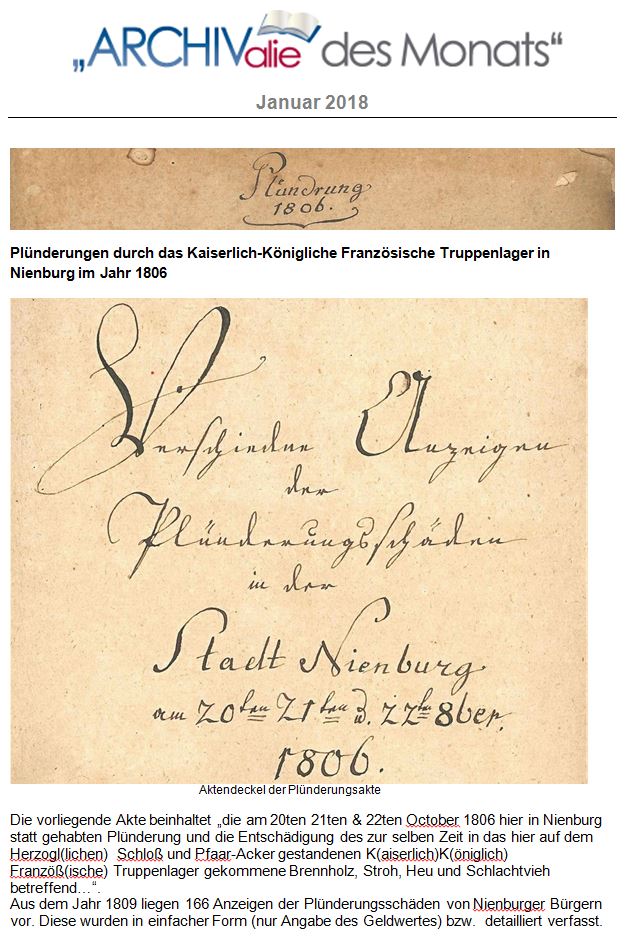 „ARCHIValie des Monats“
Januar 2018
Plündrung
1806.
Plünderungen durch das Kaiserlich-Königliche Französische Truppenlager in
Nienburg im Jahr 1806
Verschiedne Anzeigen
der
Plünderungsschäden
in der
Stadt Nienburg
am 20ten 21ten u. 22tn 8ber.
1806.
Aktendeckel der Plünderungsakte
Die vorliegende Akte beinhaltet „die am 20ten 21ten & 22ten October 1806 hier in Nienburg
statt gehabten Plünderung und die Entschädigung des zur selben Zeit in das hier auf dem
Herzogl(lichen) Schloß und Pfaar-Acker gestandenen K(aiserlich)K(öniglich)
Französ(ische) Truppenlager gekommene Brennholz, Stroh, Heu und Schlachtvieh
betreffend…“.
Aus dem Jahr 1809 liegen 166 Anzeigen der Plünderungsschäden von Nienburger Bürgern
vor. Diese wurden in einfacher Form (nur Angabe des Geldwertes) bzw. detailliert verfasst.